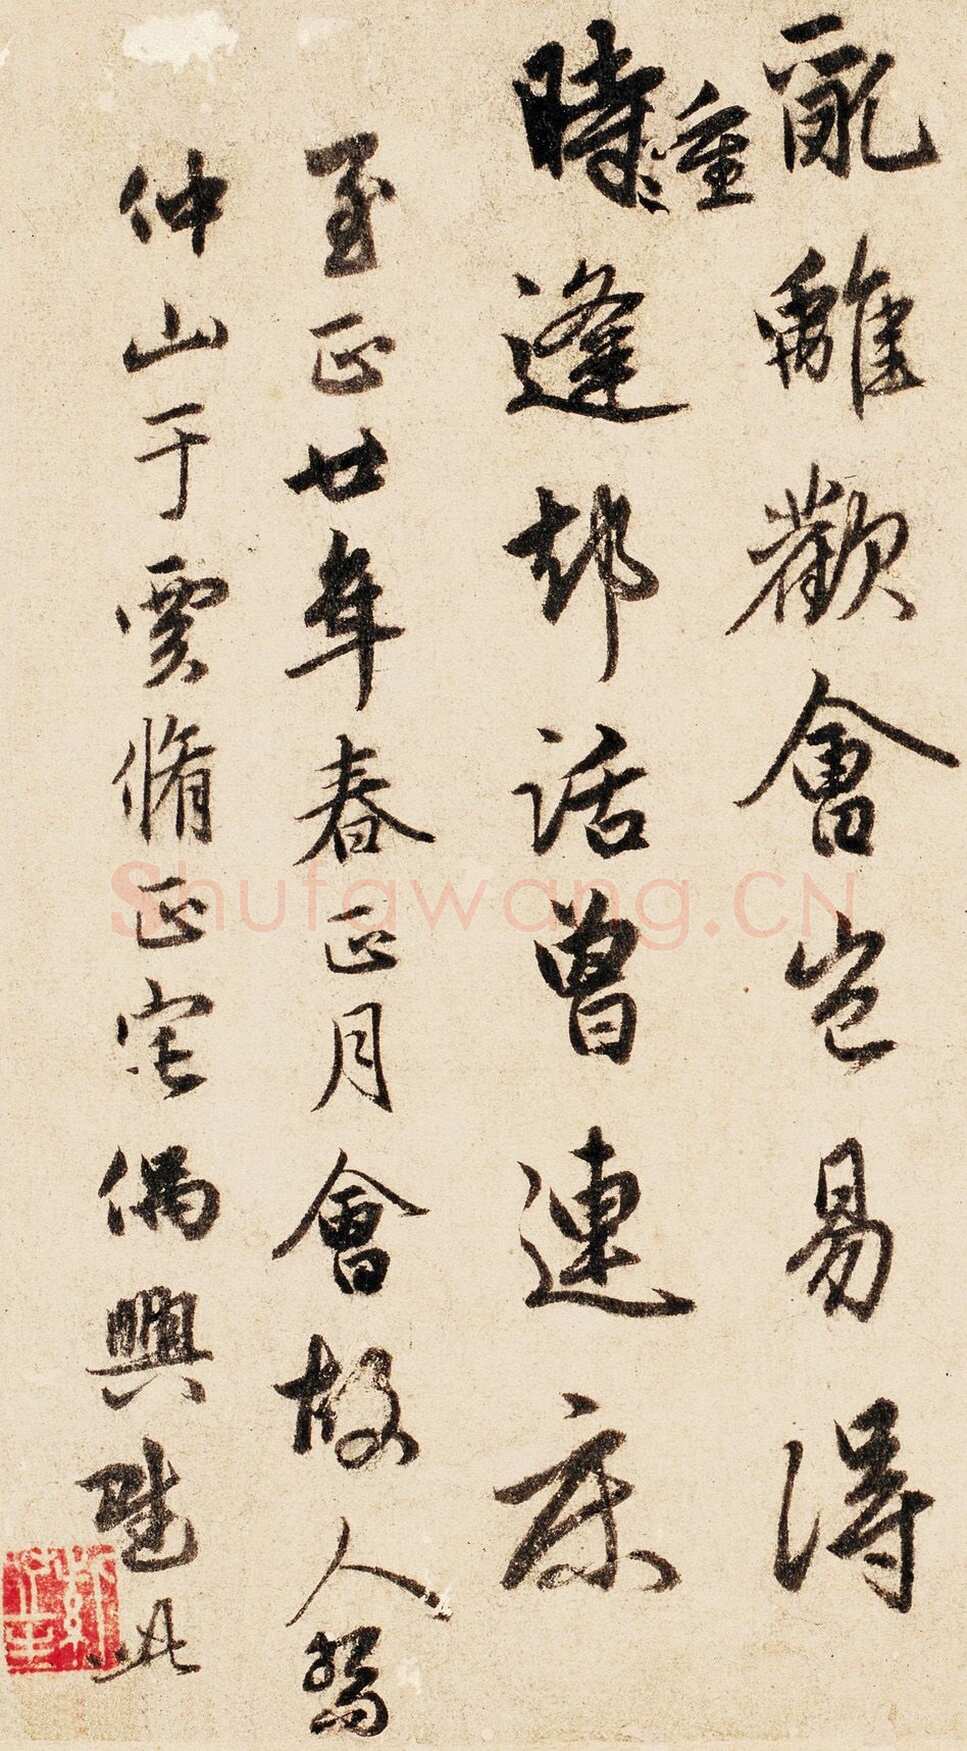 亂離歡會豈易得
時重逢却話曾連床
至正廿年春正月會故人
仲山于賈脩正宅偶興賦此
Shufawang.CN